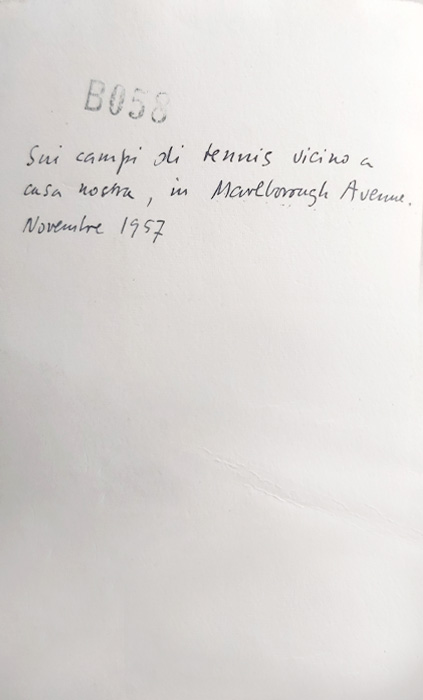 B058
Sui campi di tennis vicino a
casa nostra, in Marlborough Avenue.
Novembre 1957